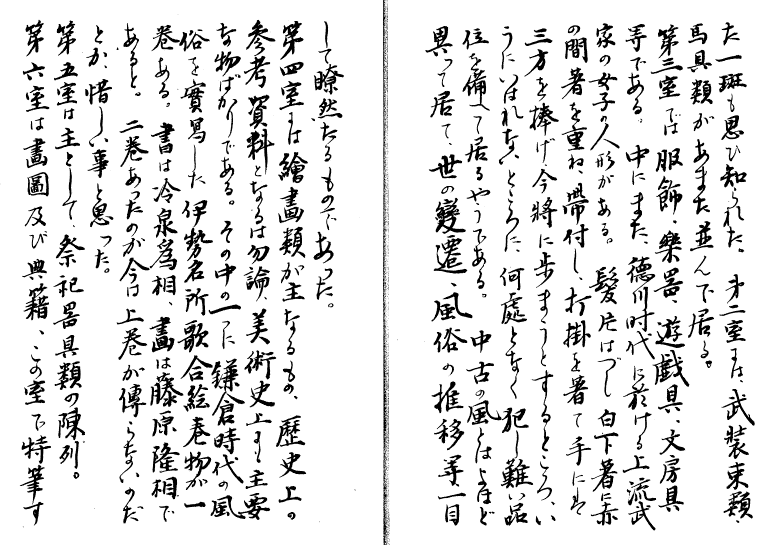 た一斑も思ひ知られた。第二室には、武装束類、
馬具類があまた並んで居る。
第三室では服飾、樂器、遊戯具、文房具
等である。中にまた、徳川時代に於ける上流武
家の女子の人形がある。髪はづし白下著に赤
の間著を重ね、帶付し、打掛を著て手には
三方を捧げ今將に歩まうとするところ、い
うにいはれないところに、何處となく犯し難い品
位を備へて居るやうである。中古の風とはよほど
異って居て、世の變遷、風俗の推移等一目
して瞭然たるものであった。
第四室には繪畫類が主なるもの、歴史上の
参考資料となるは勿論、美術史上にも主要
な物ばかりである。その中の一つに鎌倉時代の風
俗を實寫した伊勢名所歌合絵巻物が一
巻ある。書は冷泉爲相、畫は藤原隆相で
あると。二巻あったのが今は上巻が傳らないのだ
とか、惜しい事と思った。
第五室は主として、祭祀器具類の陳列。
第六室は畫圖及び典籍、この室で特筆す